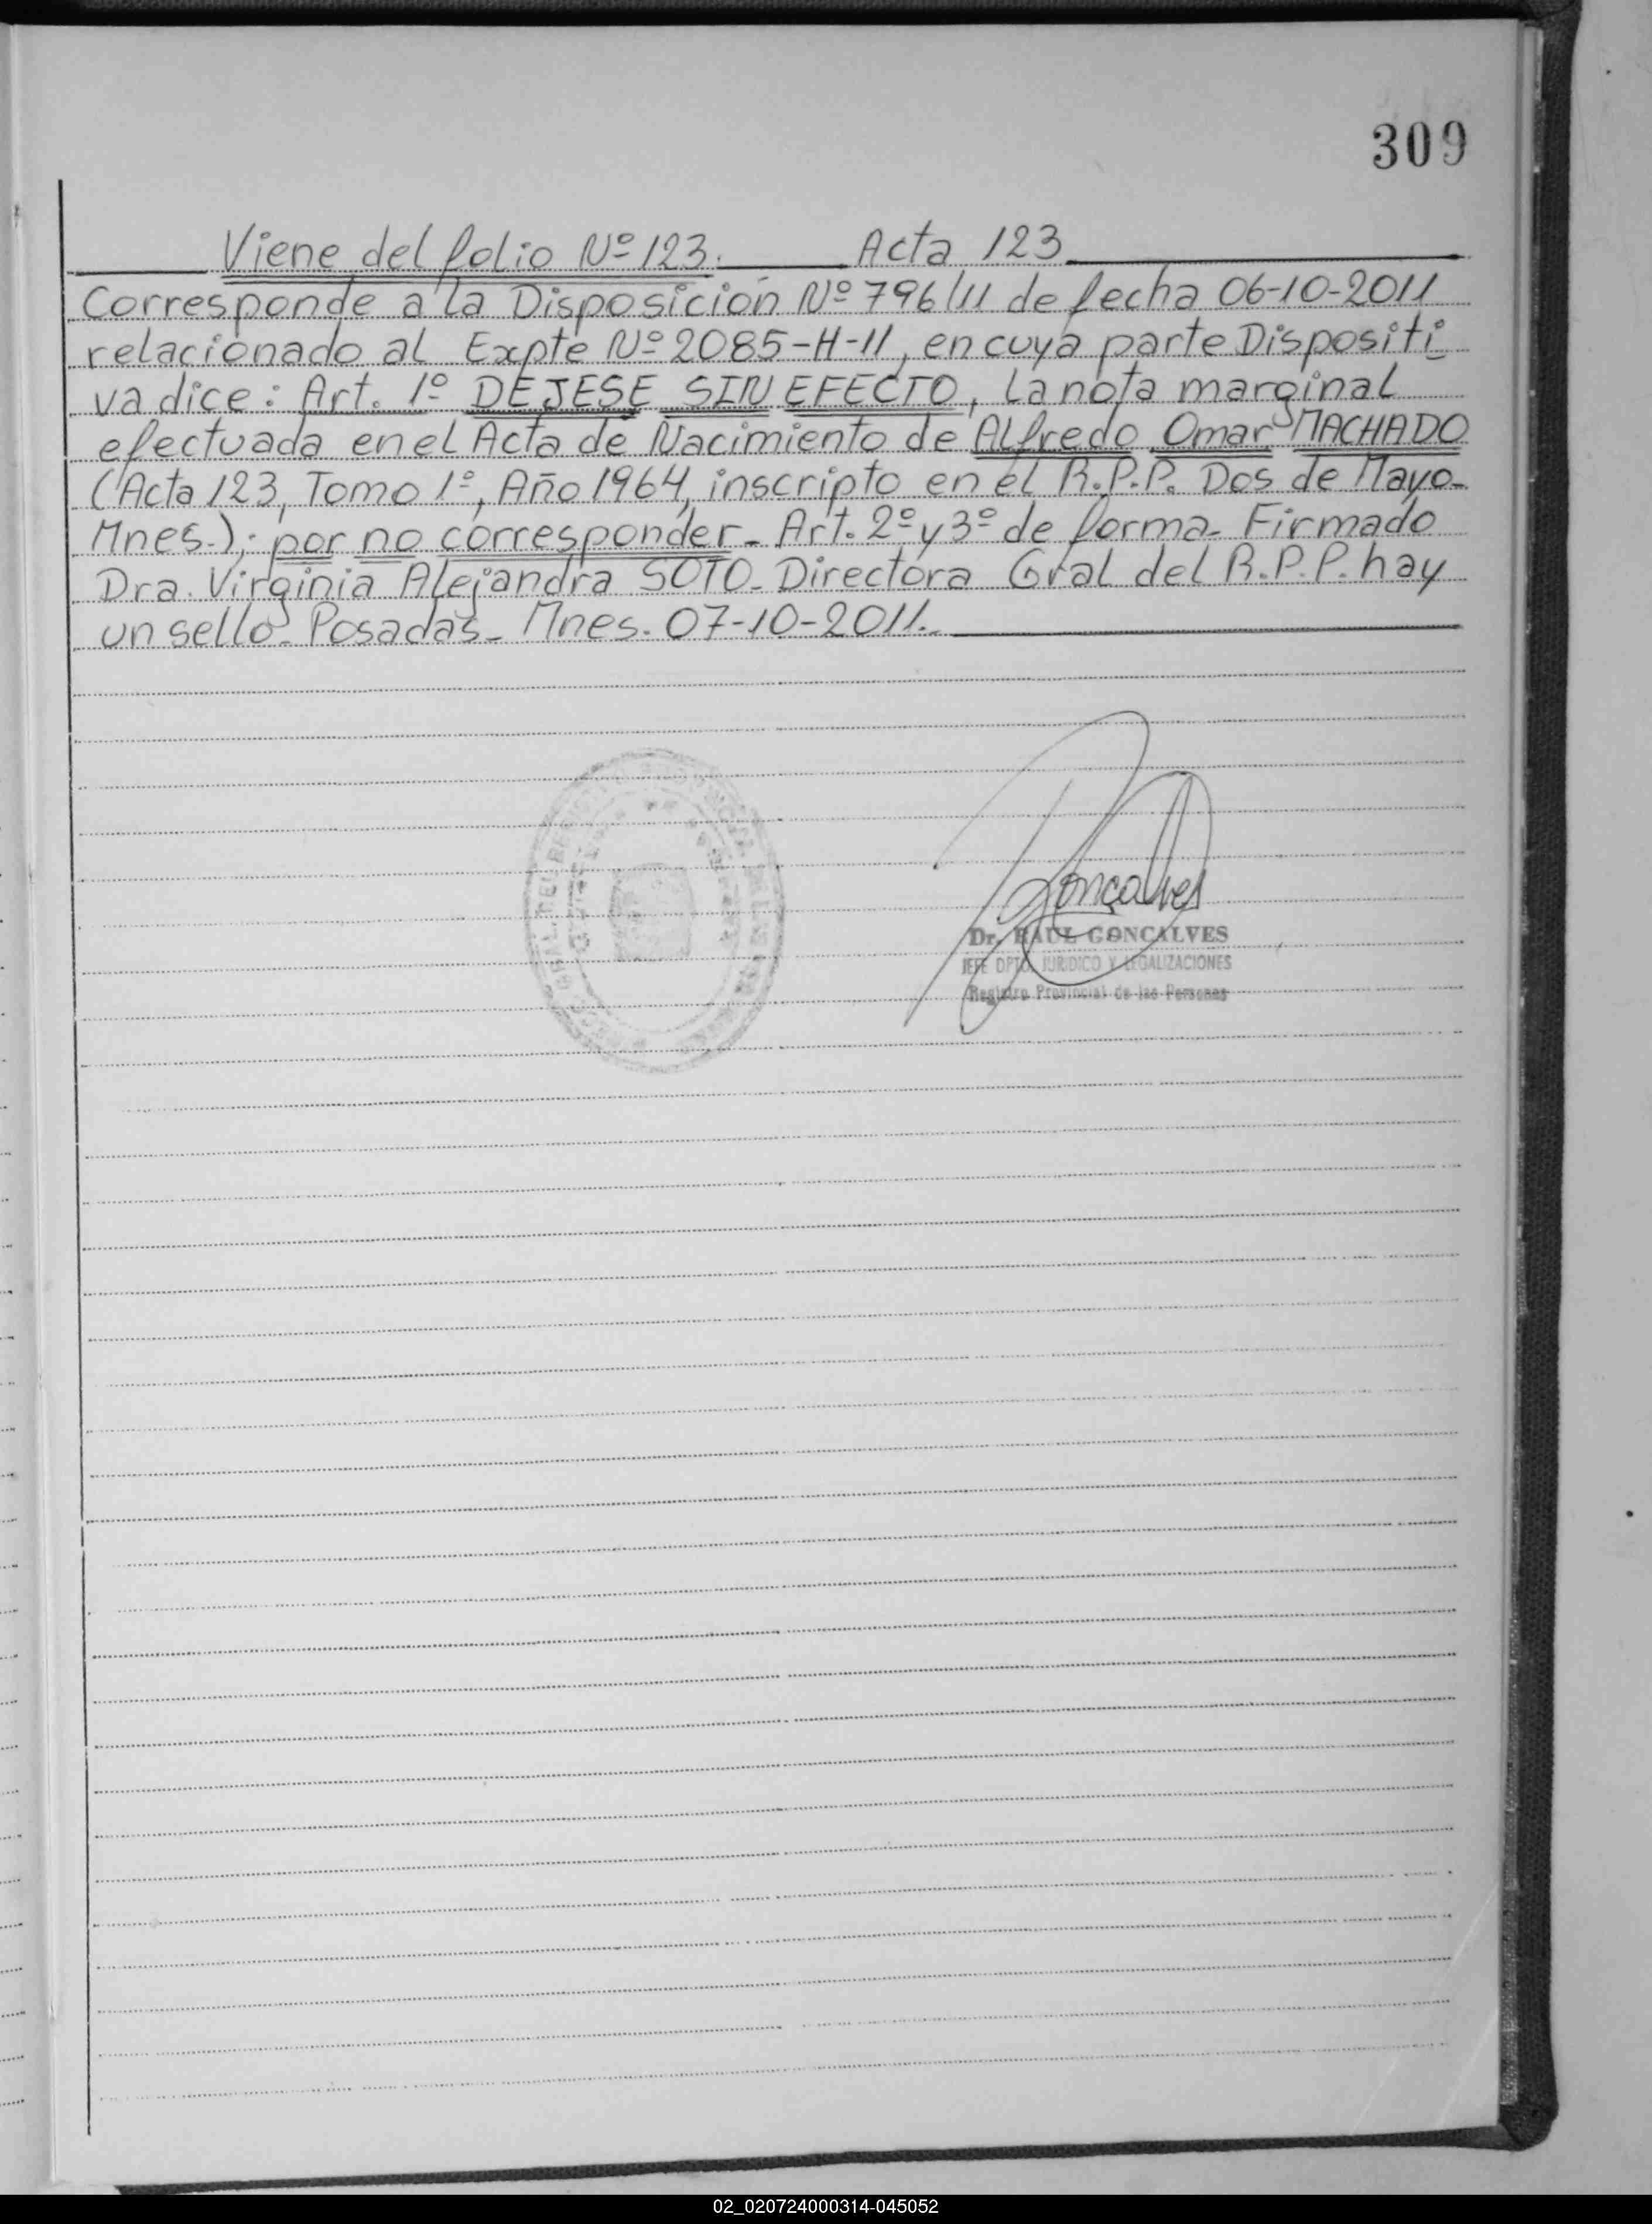 309
Viene del folio Nº 123. Acta 123
Corresponde a la Disposición Nº 796/11 de fecha 06-10-2011
relacionado al Expte Nº 2085-H-11, en cuya parte Dispositi
va dice: Art. 1º DEJESE SIN EFECTO, La nota marginal
efectuada en el Acta de Nacimiento de Alfredo Omar MACHADO
(Acta 123, Tomo 1º, Año 1964, inscripto en el R.P.P. Dos de Mayo-
Mnes.); por no corresponder- Art. 2º y 3º de forma- Firmado
Dra. Virginia Alejandra SOTO- Directora Gral del R.P.P. hay
un sello- Posadas- Mnes. 07-10-2011.
Gonçalves
Dr. RAUL GONCALVES
JEFE DPTO. JURIDICO Y LEGALIZACIONES
Registro Provincial de las Personas
02_020724000314-045052